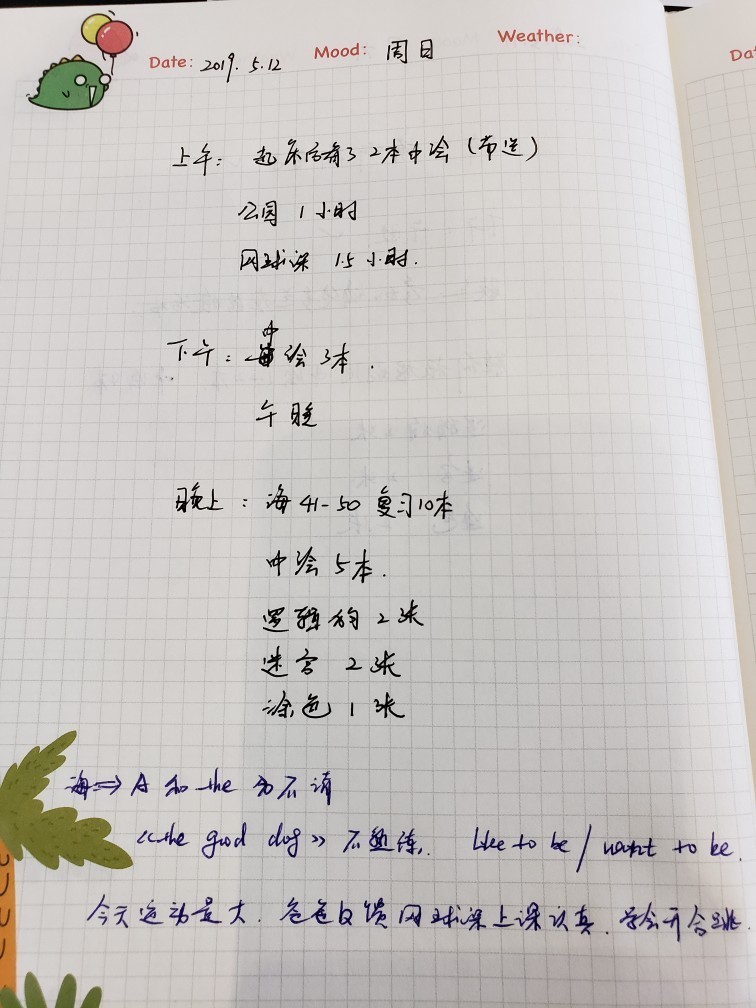 Date: 2019. 5.12 Mood: 周日 Weather:
Dat
上午: 起床后看了2本中绘(带送)
公园 1小时
网球课 1.5小时.
下午: 中绘3本.
午睡
晚上: 海41-50 复习10本
中绘5本.
逻辑狗2张
迷宫 2张
涂色 1张
海⇒ A和the 分不清
《the good dog》不熟练. like to be / want to be.
今天运动量大. 爸爸反馈网球课上课认真. 学会开合跳.